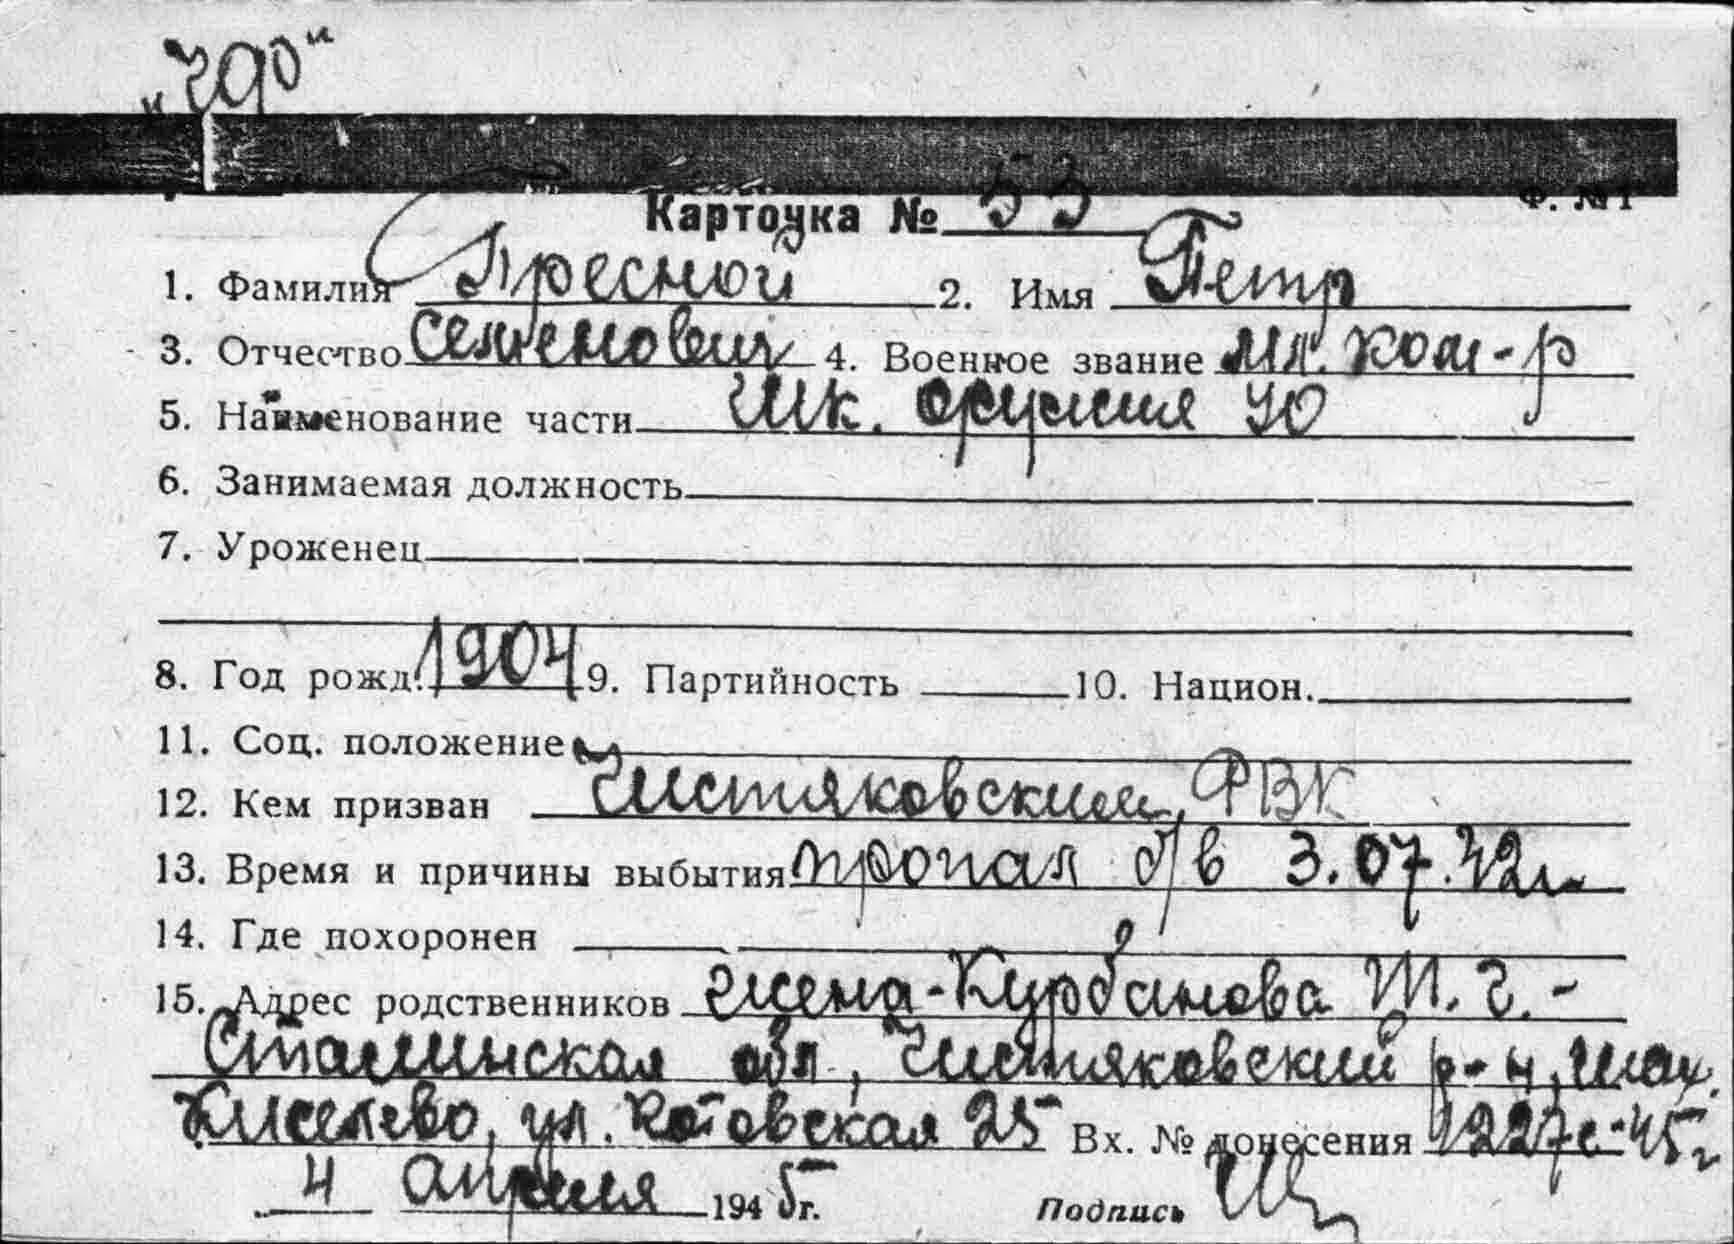 Карточка № 53
Ф. №1
1. Фамилия Пресной 2. Имя Петр
3. Отчество Семенович 4. Военное звание мл. ком-р
5. Наименование части шк. оружия ЮФ
6. Занимаемая должность
7. Уроженец
8. Год рожд. 1904 9. Партийность 10. Национ.
11. Соц. положение
12. Кем призван Чистяковский РВК
13. Время и причины выбытия пропал б/в 3.07.42г.
14. Где похоронен
15. Адрес родственников жена-Курбанова
Сталинская обл., Чистяковский р-н, шах.
Киселево, ул. Котовская 25 Вх. № донесения 1227с-45г
4 апреля 1945г. Подпись